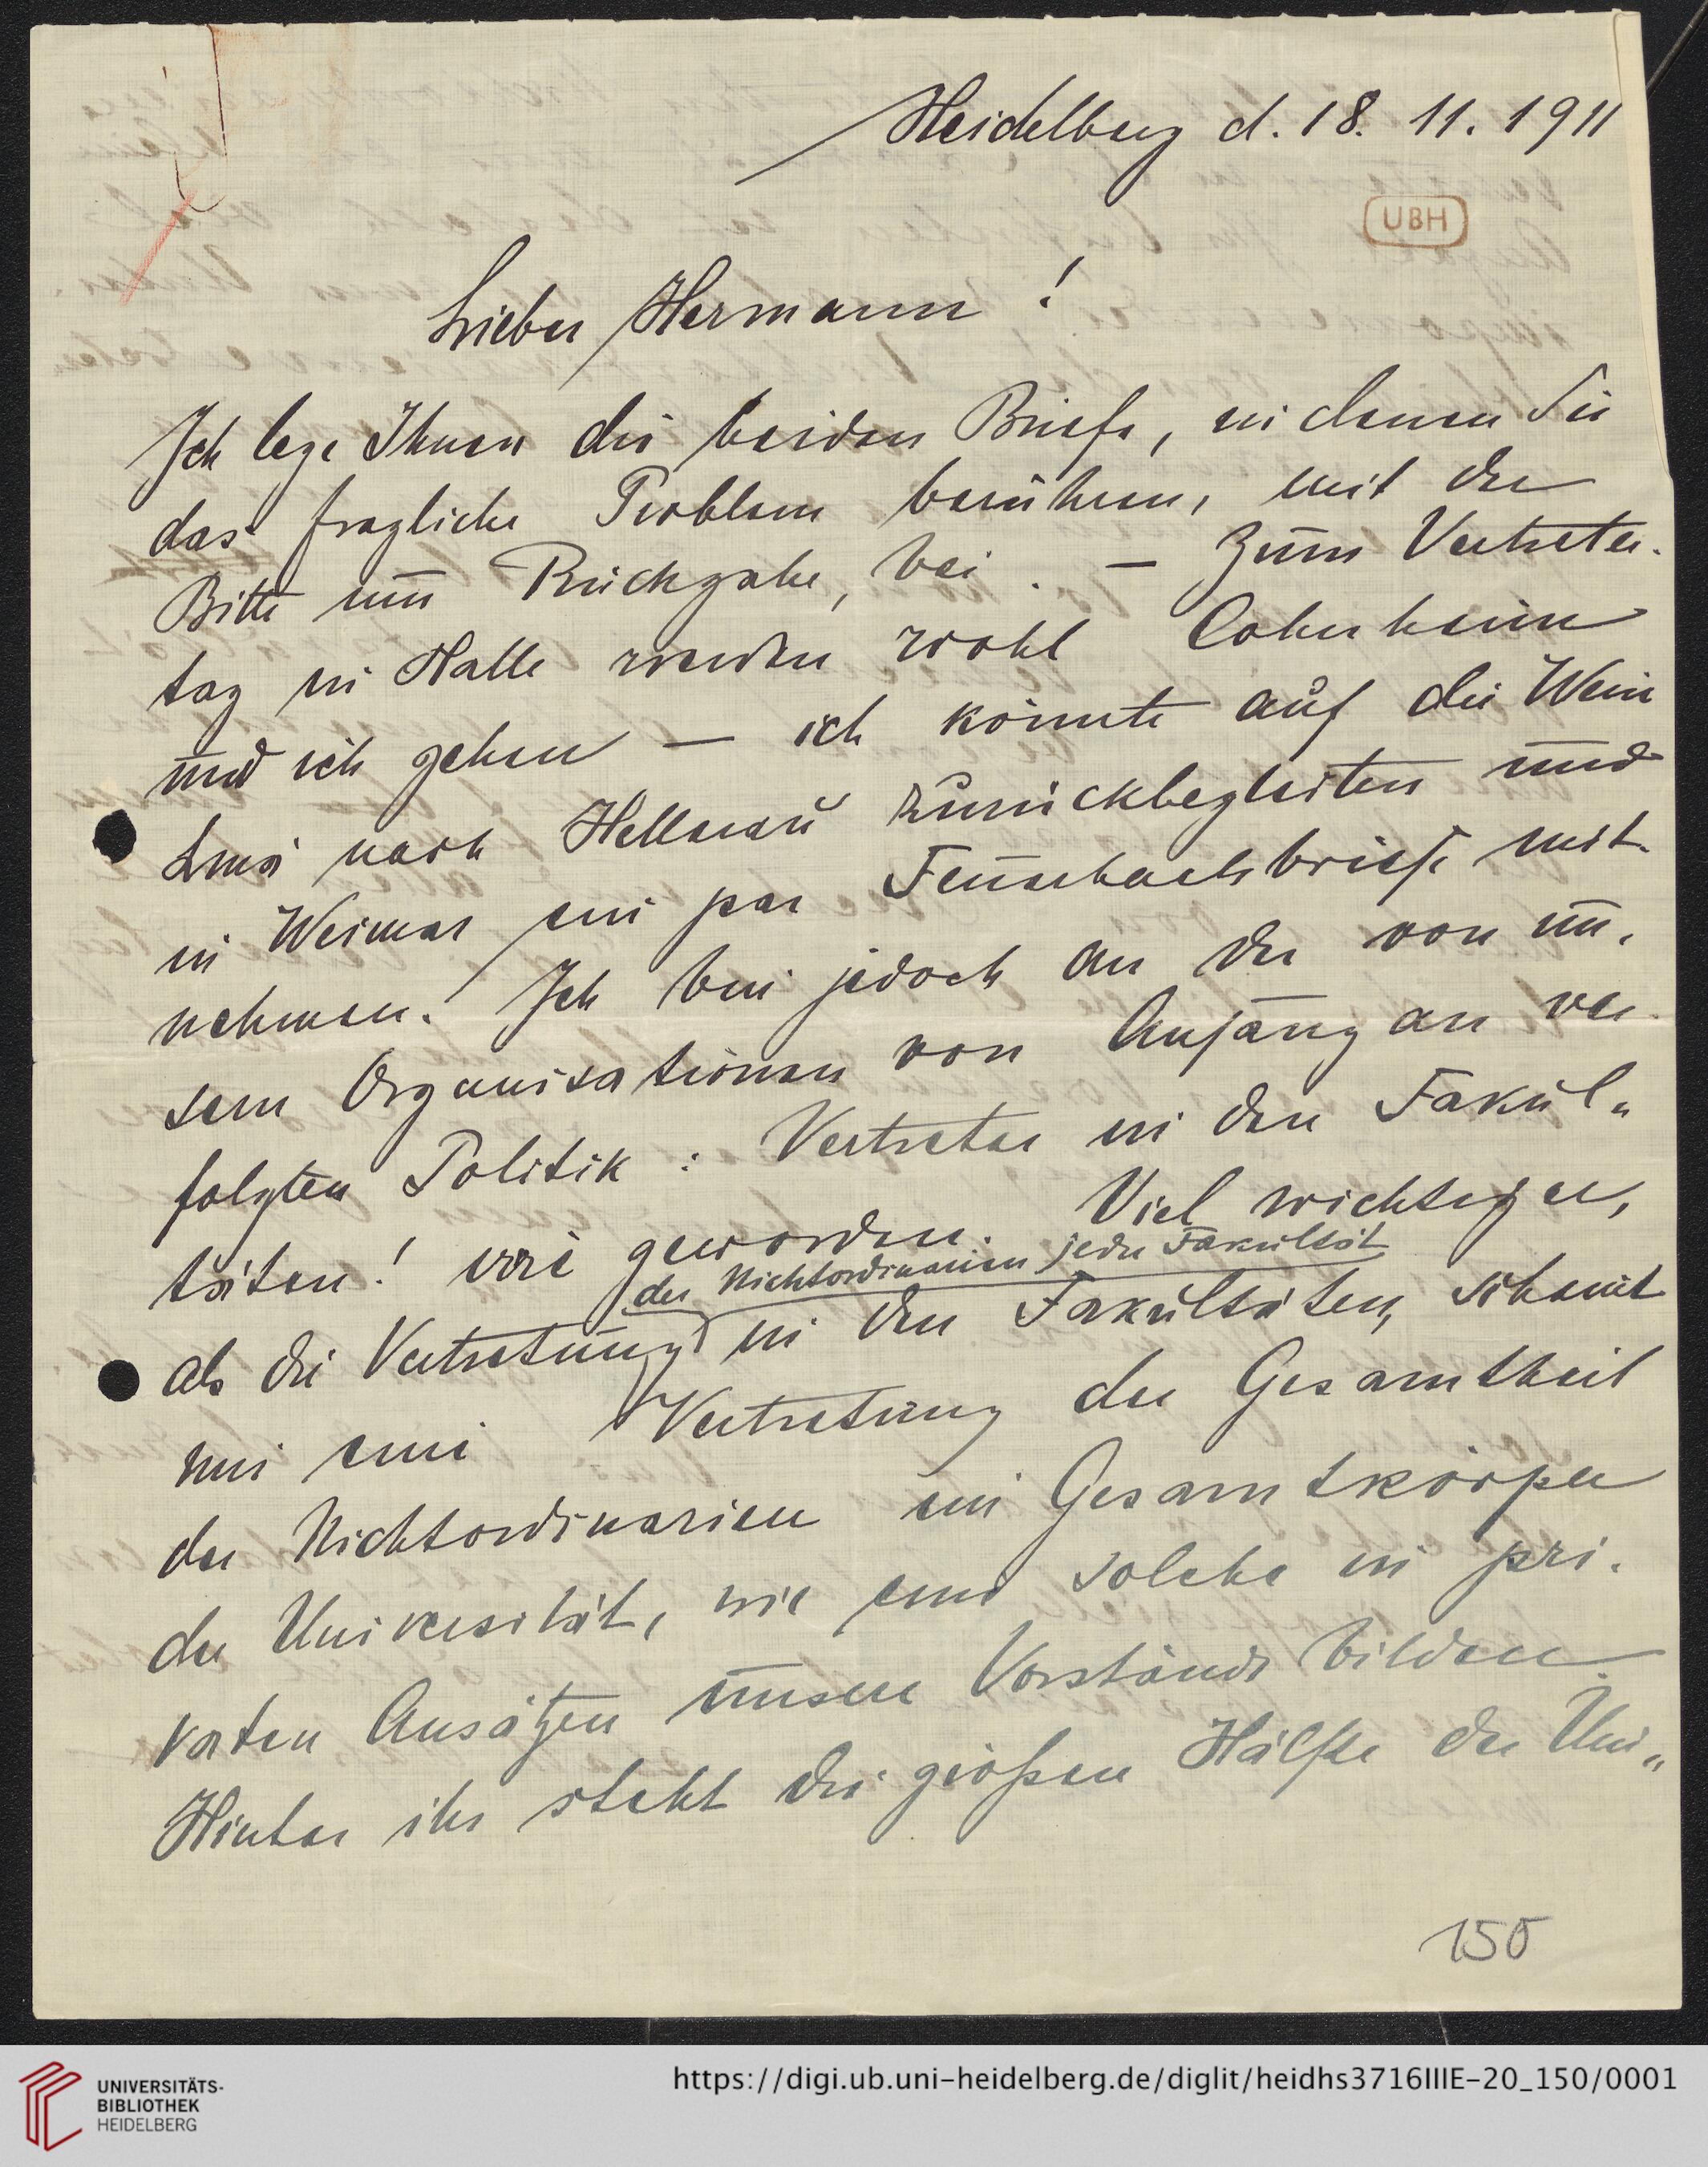 Heidelberg d. 18. 11. 1911
UBH
Lieber Hermann!
Ich lege Ihnen die beiden Briefe, in denen Sie
das fragliche Problem berühren, mit der
Bitte um Rückgabe, bei. – Zum Vertreter-
tag in Halle werden wohl Cohnheim
und ich gehen – ich könnte auf die Weise
nach Hellerau zurückbegleiten und
in Weimar ein paar Feuerbachbriefe mit-
nehmen. Ich bin jedoch an der von un-
sern Organisationen von Anfang an ver-
folgten Politik: Vertreter in den Fakul-
täten! irre geworden. Viel wichtiger,
der Nichtordinarien jeder Fakultät
als die Vertretung in den Fakultäten, scheint
mir eine Vertretung der Gesamtheit
der Nichtordinarien im Gesamtkörper
der Universität, wie eine solche in pri-
vaten Ansätzen unsere Vorstände bilden.
Hinter ihr steht die größere Hälfte der Uni-
150
UNIVERSITÄTS-
BIBLIOTHEK
HEIDELBERG
https://digi.ub.uni-heidelberg.de/diglit/heidhs3716IIIE-20_150/0001